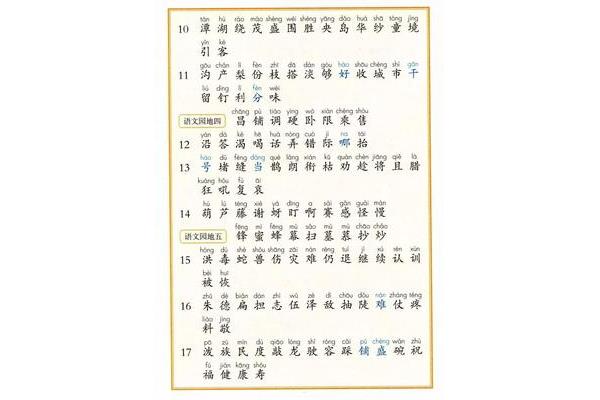 tán hú rào mào shèng wéi shèng yāng dǎo huá shā tóng jìng
10 潭 湖 绕 茂 盛 围 胜 央 岛 华 纱 童 境
yǐn kè
引 客
gōu chǎn lí fèn zhī dā dàn gòu hào shōu chéng shì gān
11 沟 产 梨 份 枝 搭 淡 够 好 收 城 市 干
liú dīng lì fèn wèi
留 钉 利 分 味
chāng pù tiáo yìng wò xiàn chéng shòu
语文园地四 昌 铺 调 硬 卧 限 乘 售
yán dá kě hē huà nòng cuò jì na tái
12 沿 答 渴 喝 话 弄 错 际 哪 抬
háo dǔ fèng dàng què lǎng xián kū quàn chèn jiāng qiě là
13 号 堵 缝 当 鹊 朗 衔 枯 劝 趁 将 且 腊
kuáng hǒu fù āi
狂 吼 复 哀
hú lú téng xiè yá dīng a sài gǎn guài màn
14 葫 芦 藤 谢 蚜 盯 啊 赛 感 怪 慢
fēng mì fēng mù sǎo mù mù chāo chǎo
语文园地五 锋 蜜 蜂 幕 扫 墓 慕 抄 炒
hóng dú shé shòu shāng zāi nàn réng tuì jì xù rèn xùn
15 洪 毒 蛇 兽 伤 灾 难 仍 退 继 续 认 训
bèi huī
被 恢
zhū dé biǎn dàn zhì wǔ zé dí chōu dǒu nán zhàng téng
16 朱 德 扁 担 志 伍 泽 敌 抽 陡 难 仗 疼
liào jìng
料 敬
pō zú mín dù qiāo lóng shǐ róng cǎi pū chéng wǎn zhù
17 泼 族 民 度 敲 龙 驶 容 踩 铺 盛 碗 祝
fú jiàn kāng shòu
福 健 康 寿